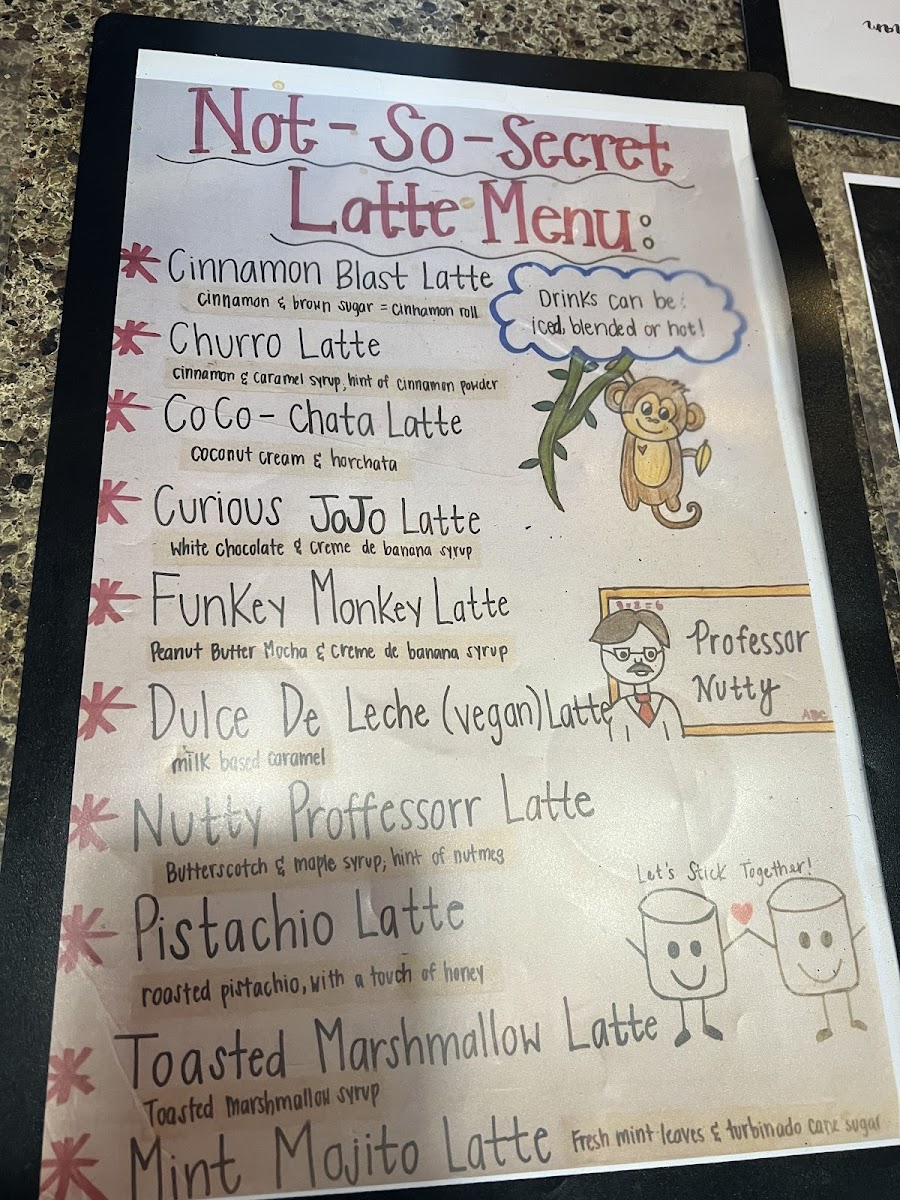 Not-So-Secret
Latte Menu:
Cinnamon Blast Latte
Cinnamon & brown sugar = cinnamon roll
Drinks can be:
iced, blended or hot!
Churro Latte
Cinnamon & Caramel syrup, hint of cinnamon powder
CoCo-Chata Latte
Coconut cream & horchata
Curious JoJo Latte
White Chocolate & Creme de banana syrup
Funkey Monkey Latte
Peanut Butter Mocha & Creme de banana syrup
Professor
Nutty
ABC
Dulce De Leche (vegan) Latte
milk based caramel
Nutty Proffessorr Latte
Butterscotch & maple syrup, hint of nutmeg
Let's Stick Together!
Pistachio Latte
roasted pistachio, with a touch of honey
Toasted Marshmallow Latte
Toasted Marshmallow syrup
Mint Mojito Latte Fresh mint leaves & turbinado cane sugar